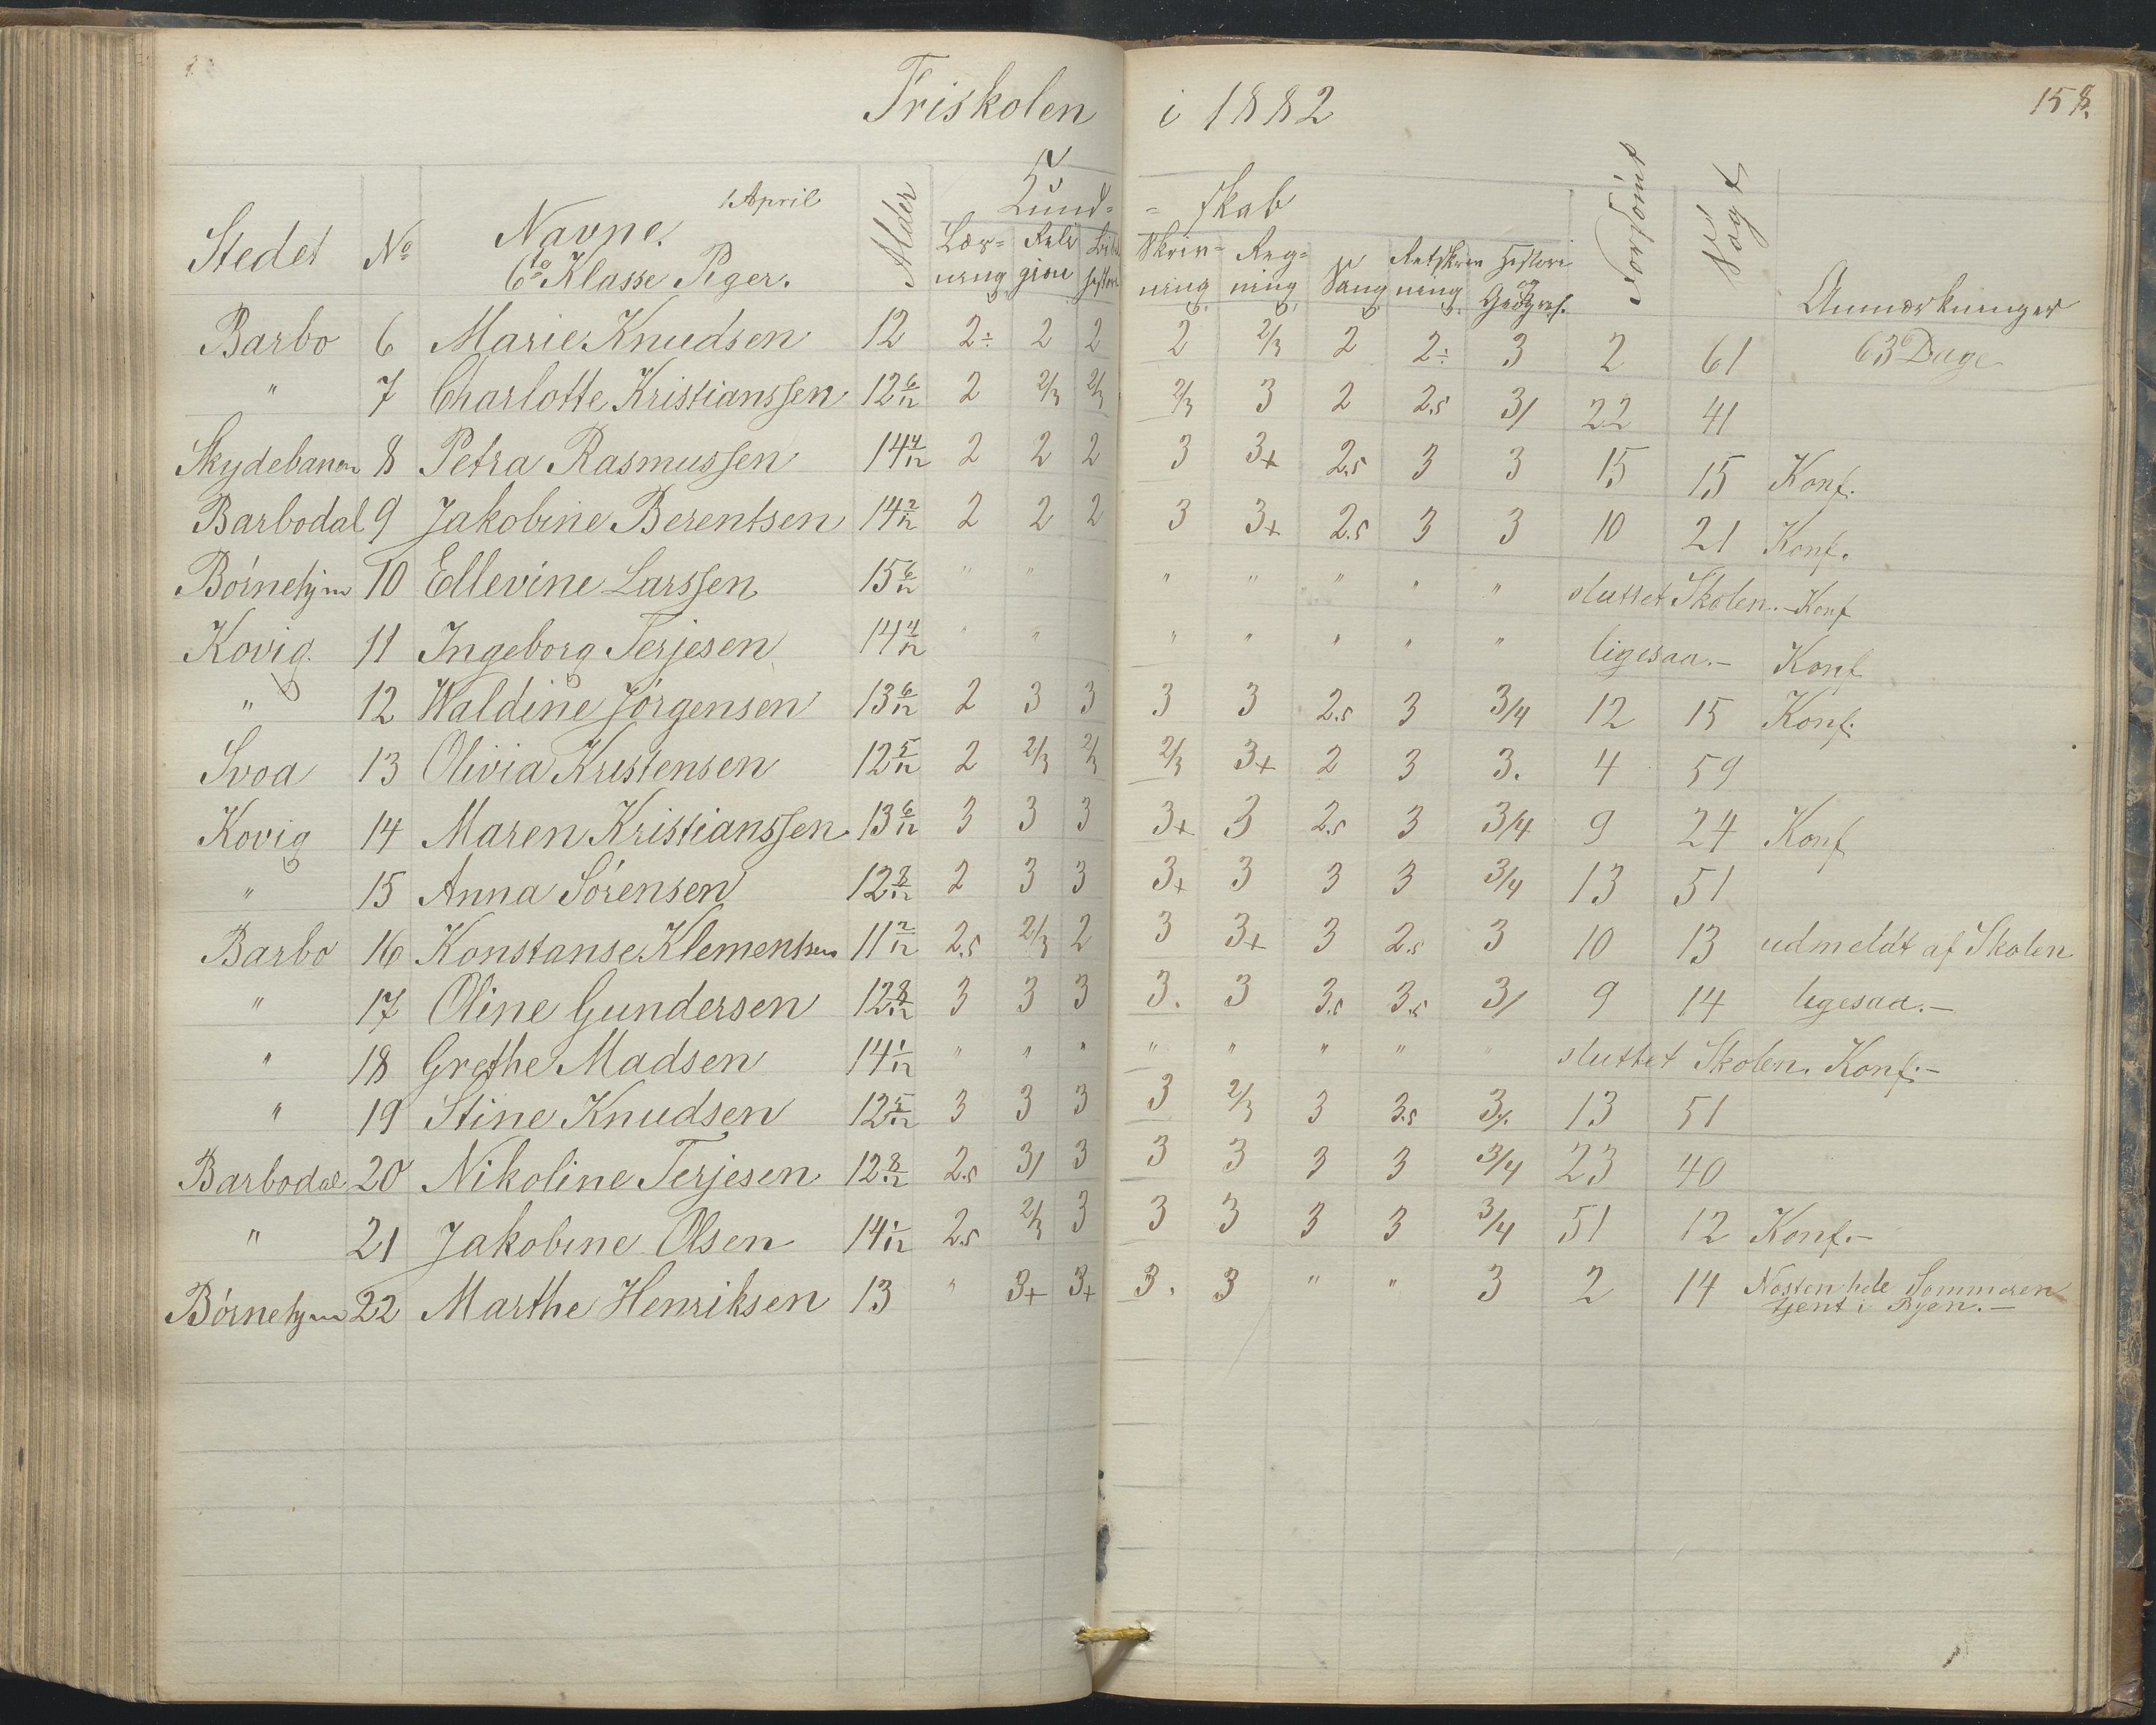 Friskolen i 1882 158.
Stedet No Navne. 1 April Alder Kund= =skab Forsömt Søgt Anmærkninger
6te Klasse Piger. Læs=ning Reli gion Bibel histori Skriv=ning Reg=ning Sang Retskrivning Histori og Geograf.
Barbo 6 Marie Knudsen 12 2÷ 2 2 2 2/3 2 2÷ 3 2 61 63 Dage
" 7 Charlotte Kristianssen 12 6/12 2 2/3 2/3 2/3 3 2 2.5 3/ 22 41
Skydebanen 8 Petra Rasmussen 14 4/12 2 2 2 3 3+ 2.5 3 3 15 15 Konf.
Barbodal 9 Jakobine Berentsen 14 2/12 2 2 2 3 3+ 2.5 3 3 10 21 Konf.
Börnehjm 10 Ellevine Larssen 15 6/12 " " " " " " " sluttet Skolen.- Konf
Kovig. 11 Ingeborg Terjesen 14 4/12 " " " " " " " ligesaa.- Konf
" 12 Waldine Jörgensen 13 6/12 2 3 3 3 3 2.5 3 3/4 12 15 Konf.
Svoa 13 Olivia Kristensen 12 5/12 2 2/3 2/3 2/3 3+ 2 3 3. 4 59
Kovig 14 Maren Kristianssen 13 6/12 3 3 3 3+ 3 2.5 3 3/4 9 24 Konf
" 15 Anna Sörensen 12 8/12 2 3 3 3+ 3 3 3 3/4 13 51
Barbo 16 Konstanse Klementsen 11 2/12 2.5 2/3 2 3 3+ 3 2.5 3 10 13 udmeldt af Skolen
" 17 Oline Gundersen 12 8/12 3 3 3 3. 3 3.5 3.5 3/ 9 14 ligesaa.-
" 18 Grethe Madsen 14 1/12 " " " " " " " " sluttet Skolen. Konf.-
" 19 Stine Knudsen 12 5/12 3 3 3 3 2/3 3 3.5 3/. 13 51
Barbodal 20 Nikoline Terjesen 12 8/12 2.5 3/ 3 3 3 3 3 3/4 23 40
" 21 Jakobine Olsen 14 1/12 2.5 2/3 3 3 3 3 3 3/4 51 12 Konf.-
Börnehjm 22 Marthe Henriksen 13 " 3+ 3+ 3. 3 " " 3 2 14 Næsten hele Sommeren
tjent i Byen.-